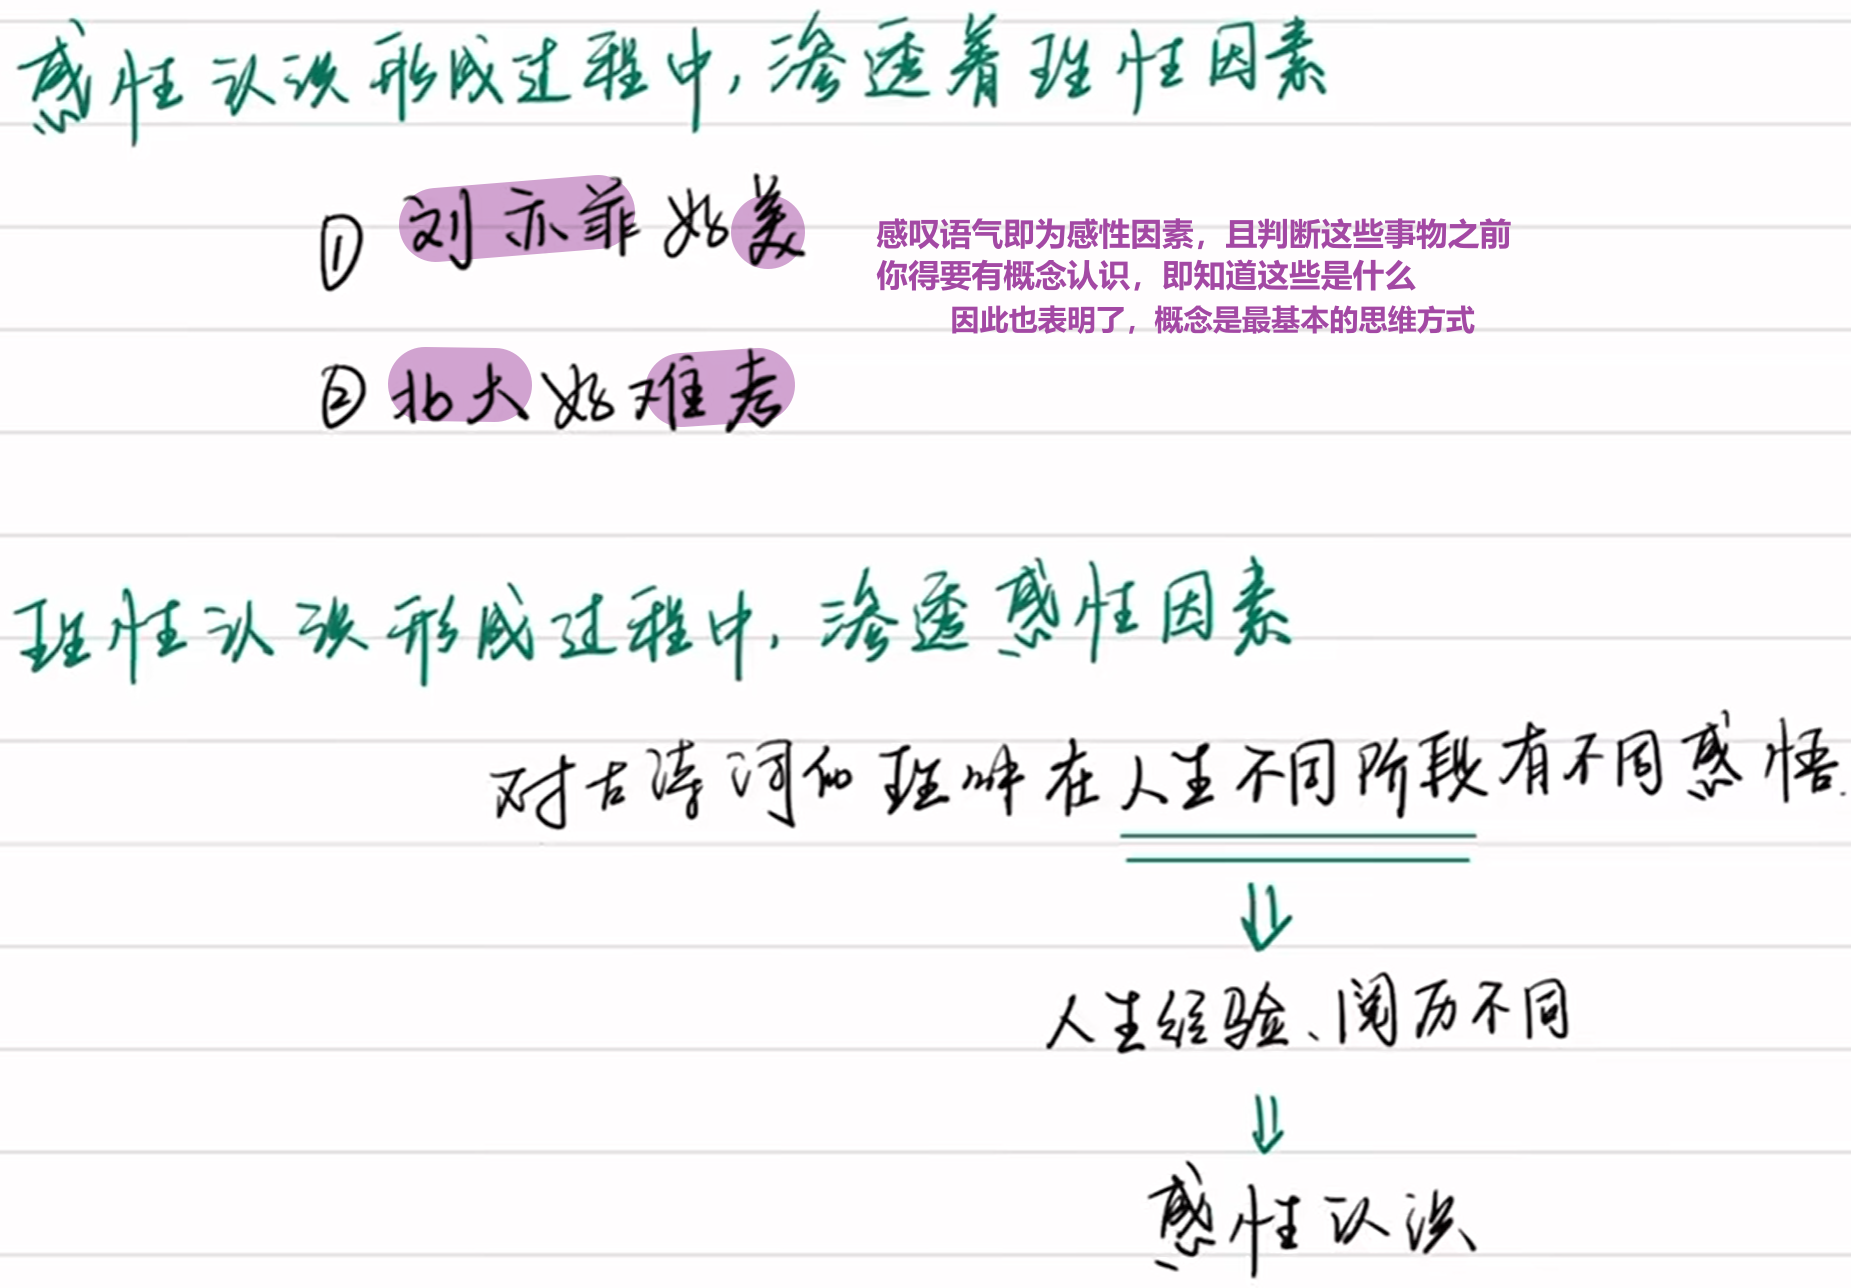 感性认识形成过程中，渗透着理性因素
① 刘亦菲好美
感叹语气即为感性因素，且判断这些事物之前
你得要有概念认识，即知道这些是什么
因此也表明了，概念是最基本的思维方式
② 北大好难考
理性认识形成过程中，渗透感性因素
对古诗词的理解在人生不同阶段有不同感悟.
⇓
人生经验、阅历不同
⇓
感性认识